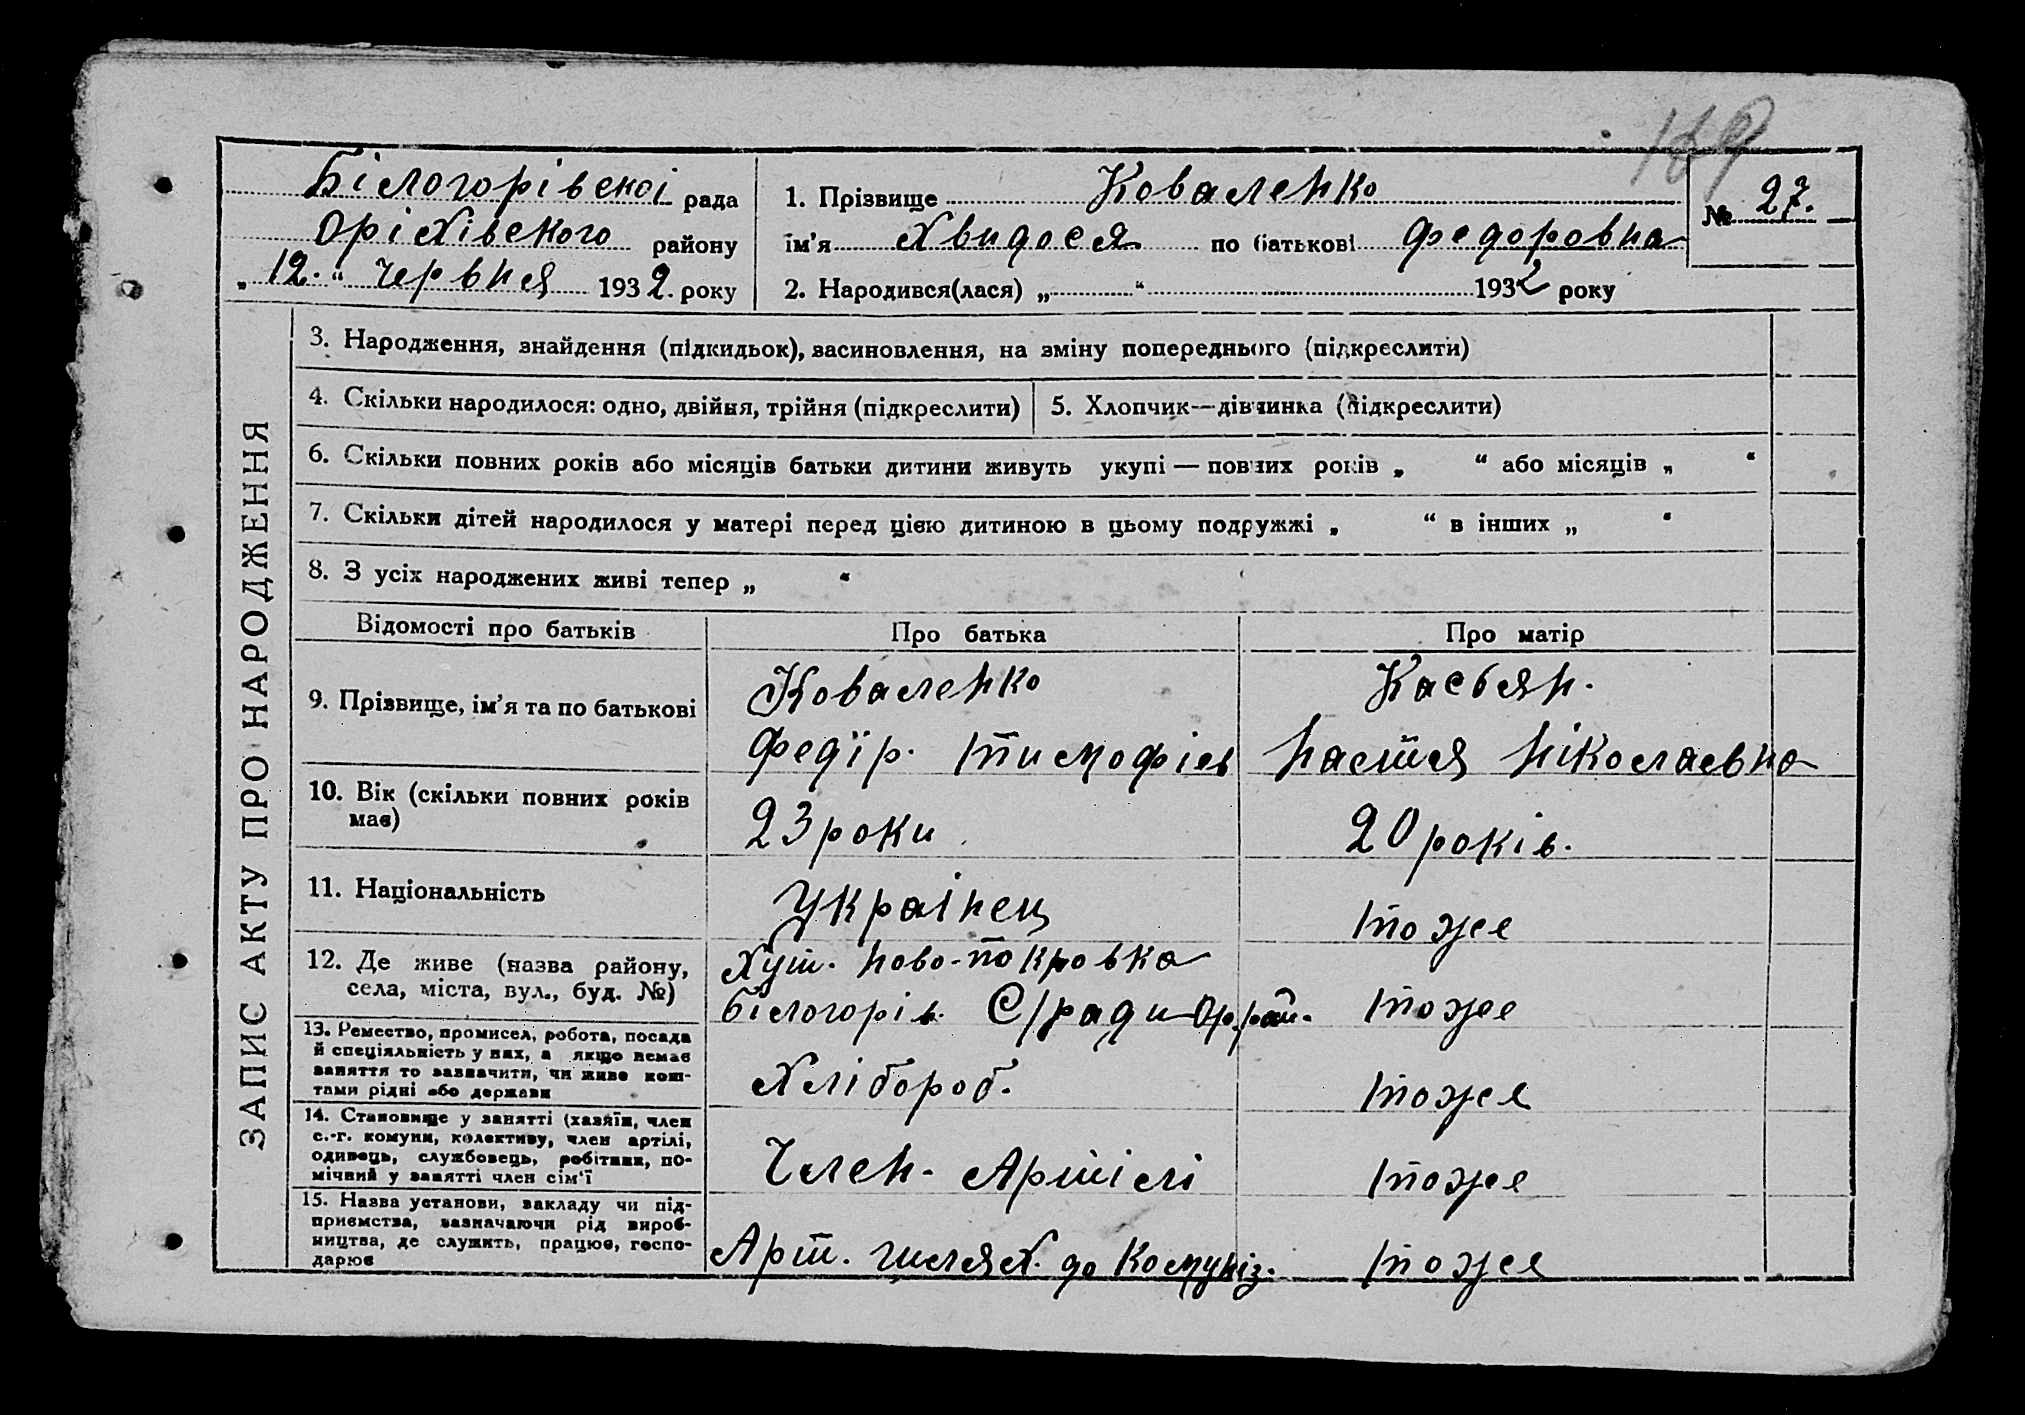 169
Білогорівскоі рада
Оріхівского району
„ 12. “ червня 1932. року
1. Прізвище Коваленко
ім’я Хвидося по батькові Федоровна
2. Народився(лася) „ “ 1932 року
№ 27.
ЗАПИС АКТУ ПРО НАРОДЖЕННЯ
3. Народження, знайдення (підкидьок), засиновлення, на зміну попереднього (підкреслити)
4. Скільки народилося: одно, двійня, трійня (підкреслити)
5. Хлопчик—дівчинка (підкреслити)
6. Скільки повних років або місяців батьки дитини живуть укупі — повних років „ “ або місяців „ “
7. Скільки дітей народилося у матері перед цією дитиною в цьому подружжі „ “ в інших „ “
8. З усіх народжених живі тепер „ “
Відомості про батьків
Про батька
Про матір
9. Прізвище, ім’я та по батькові
Коваленко
Федїр. Тимофіев
Касьян.
Настя Ніколаевна
10. Вік (скільки повних років
має)
23 роки
20 років.
11. Національність
Украінец
тоже
12. Де живе (назва району,
села, міста, вул., буд. №)
Хут. Ново-покровка
Білогорів. С/ради Ор. рай.
тоже
13. Ремество, промисел, робота, посада
й спеціяльність у них, а якщо немає
заняття то зазначити, чи живе кош-
тами рідні або держави
Хлібороб.
тоже
14. Становище у занятті (хазяїн, член
с.-г. комуни, колективу, член артілі,
одинець, службовець, робітник, по-
мічний у занятті член сім'ї
Член. Артілі
тоже
15. Назва установи, закладу чи під-
приємства, зазначаючи рід вироб-
ництва, де служить, працює, госпо-
дарює
Арт. шлях. до Комуніз.
тоже